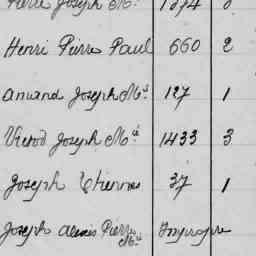 Pierre Joseph M.ie 1374
Henri Pierre Paul 660 2
Amand Joseph M.ie 127 1
Victor Joseph M.ie 1433 3
Joseph Etienne 37 1
Joseph Alexis Pierre Impropre
M.ie